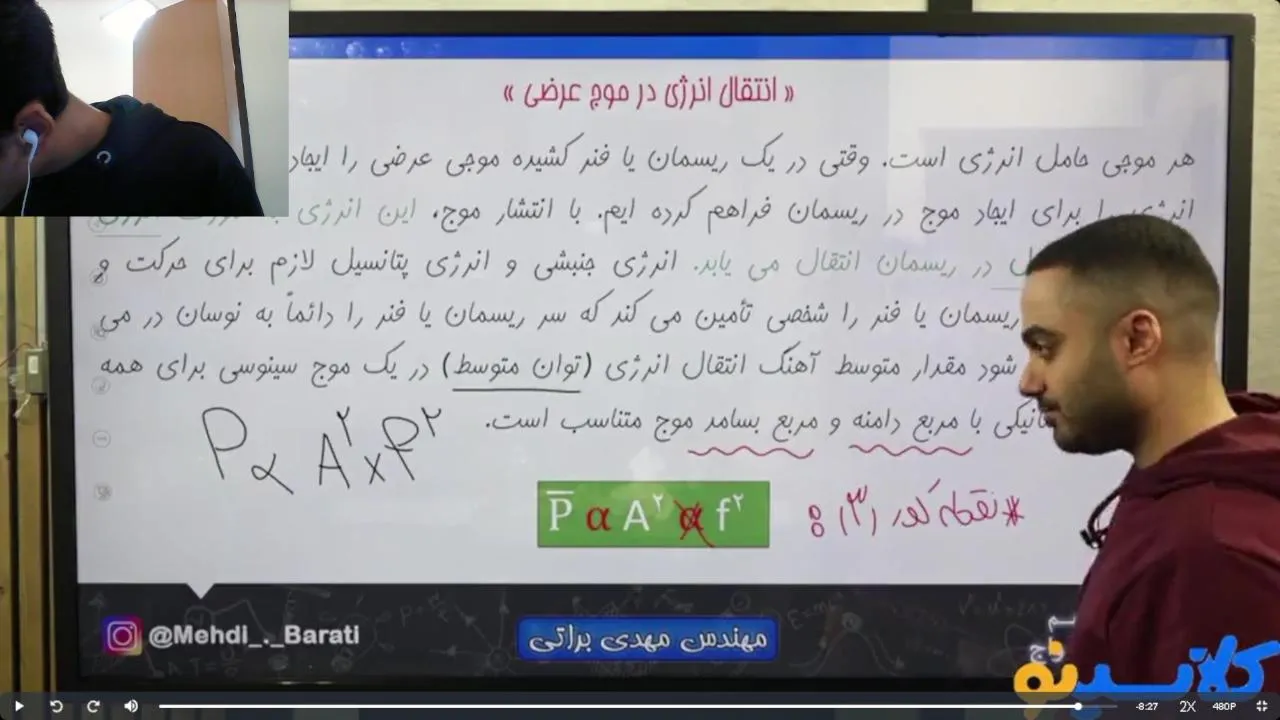 « انتقال انرژی در موج عرضی »
هر موجی حامل انرژی است. وقتی در یک ریسمان یا فنر کشیده موجی عرضی را ایجاد
انرژی را برای ایجاد موج در ریسمان فراهم کرده ایم. با انتشار موج، این انرژی به صورت انرژی
در ریسمان انتقال می یابد. انرژی جنبشی و انرژی پتانسیل لازم برای حرکت و
ریسمان یا فنر را شخصی تأمین می کند که سر ریسمان یا فنر را دائماً به نوسان در می
شود مقدار متوسط آهنگ انتقال انرژی (توان متوسط) در یک موج سینوسی برای همه
با مربع دامنه و مربع بسامد موج متناسب است.
P α A۲ x f۲
P̅ α A۲ α f۲
* نقطه کور (۳) :
@Mehdi_._Barati
مهندس مهدی براتی
کلاسینو
-8:27 2X 480P